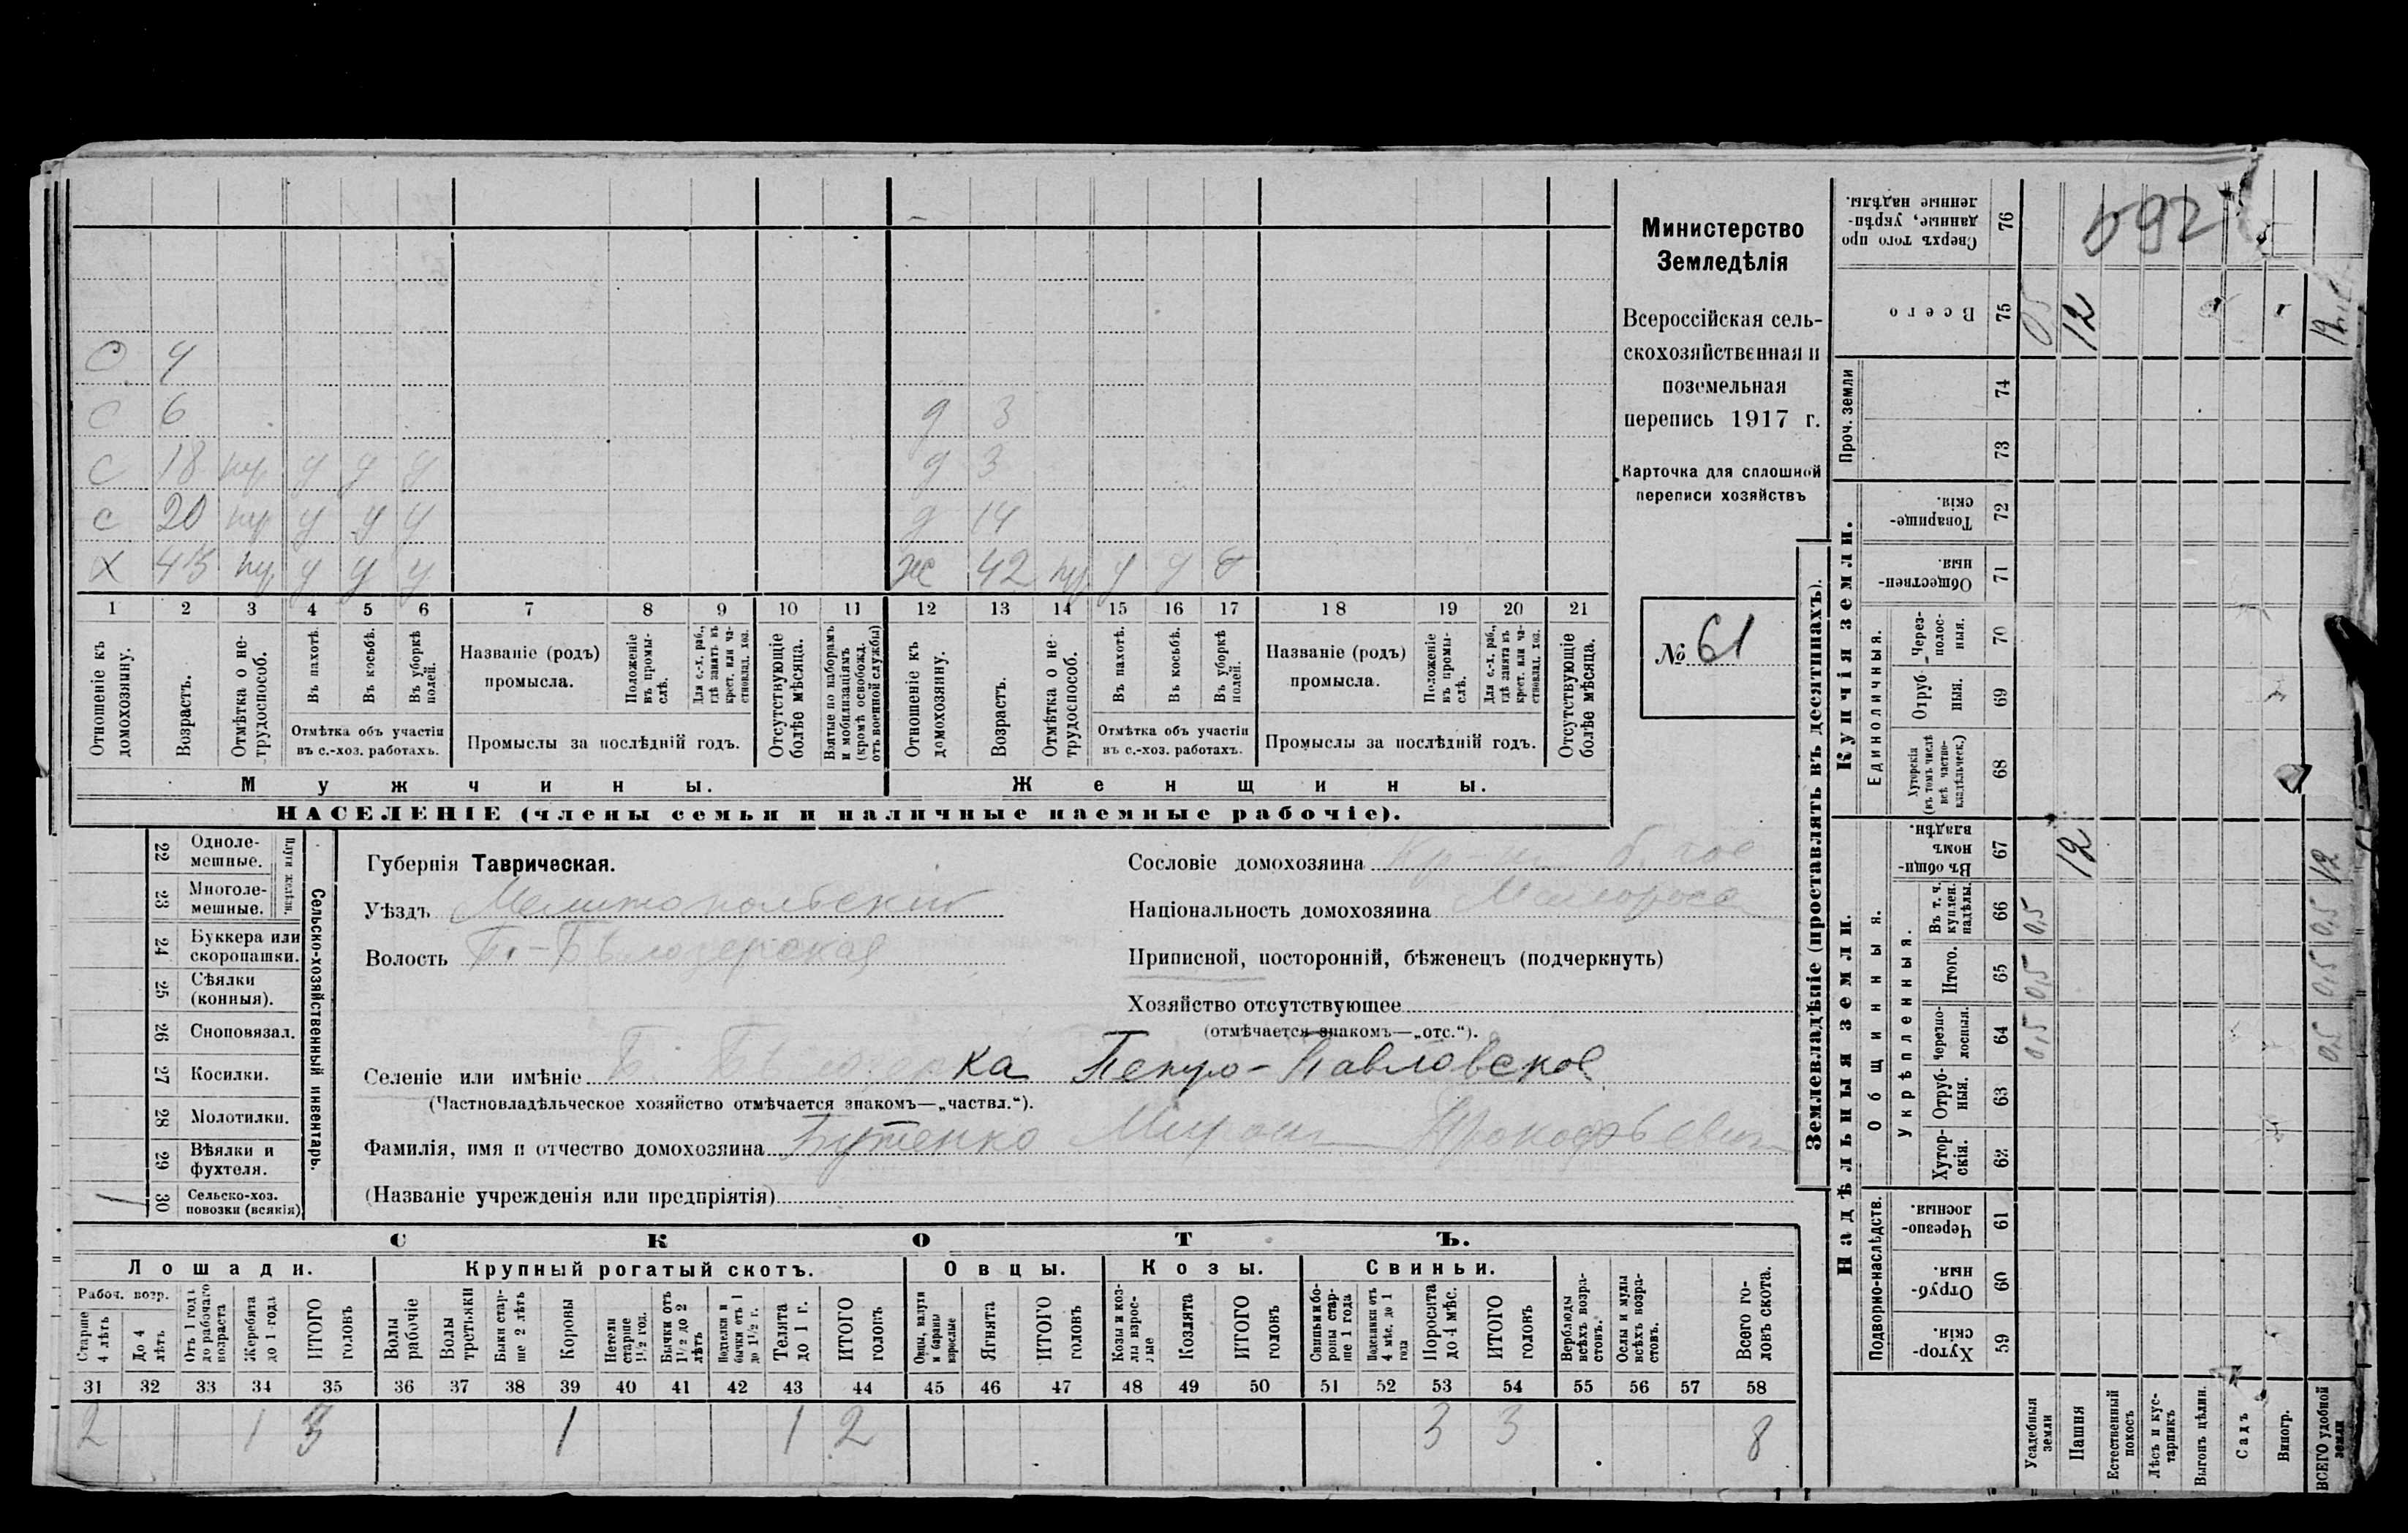 с 4
с 6
с 18 нр у у у
с 20 нр у у у
х 45 нр у у у
д 3
д 3
д 14
ж 42 нр у у
1 2 3 4 5 6 7 8 9 10 11 12 13 14 15 16 17 18 19 20 21
Отношеніе къ домохозяину.
Возрастъ.
Отмѣтка о не-трудоспособ.
Въ пахотѣ.
Въ косьбѣ.
Въ уборкѣ полей.
Отмѣтка объ участіи
въ с.-хоз. работахъ.
Названіе (родъ)
промысла.
Положеніе въ промы-слѣ.
Для с.-х. раб., гдѣ занятъ въ крест. или ча-стновлад. хоз.
Промыслы за послѣдній годъ.
Отсутствующіе болѣе мѣсяца.
Взятые по наборамъ и мобилизаціямъ (кромѣ освобожд. отъ военной службы)
Отношеніе къ домохозяину.
Возрастъ.
Отмѣтка о не-трудоспособ.
Въ пахотѣ.
Въ косьбѣ.
Въ уборкѣ полей.
Отмѣтка объ участіи
въ с.-хоз. работахъ.
Названіе (родъ)
промысла.
Положеніе въ промы-слѣ.
Для с.-х. раб., гдѣ занята въ крест. или ча-стновлад. хоз.
Промыслы за послѣдній годъ.
Отсутствующіе болѣе мѣсяца.
Мужчины.
Женщины.
НАСЕЛЕНІЕ (члены семьи и наличные наемные рабочіе).
Министерство
Земледѣлія
Всероссійская сель-
скохозяйственная и
поземельная
перепись 1917 г.
Карточка для сплошной
переписи хозяйствъ
№ 61
Сельско-хозяйственный инвентарь.
Плуги желѣзн.
22 Одноле-мешные.
23 Многоле-мешные.
24 Буккера или скоропашки.
25 Сѣялки (конныя).
26 Сноповязал.
27 Косилки.
28 Молотилки.
29 Вѣялки и фухтеля.
1 30 Сельско-хоз. повозки (всякія)
Губернія Таврическая.
Уѣздъ Мелитопольскій
Волость Б.-Бѣлозерская
Сословіе домохозяина Кр-н
Національность домохозяина Малоросс
Приписной, посторонній, бѣженецъ (подчеркнуть)
Хозяйство отсутствующее
(отмѣчается знакомъ—„отс.“).
Селеніе или имѣніе Б. Бѣлозерка Петро-Павловское
(Частновладѣльческое хозяйство отмѣчается знакомъ—„частвл.“).
Фамилія, имя и отчество домохозяина Бутенко Мирон Прокофьевич
(Названіе учрежденія или предпріятія)
СКОТЪ.
Лошади. Крупный рогатый скотъ. Овцы. Козы. Свиньи.
Рабоч. возр.
Старше 4 лѣтъ
До 4 лѣтъ
Отъ 1 года до рабочаго возраста
Жеребята до 1 года
ИТОГО головъ
Волы рабочіе
Волы третьяки
Быки стар-ше 2 лѣтъ
Коровы
Нетели старше 1½ год.
Бычки отъ 1½ до 2 лѣтъ
Подтелки и бычки отъ 1 до 1½ г.
Телята до 1 г.
ИТОГО головъ
Овцы, валухи и бараны взрослые
Ягнята
ИТОГО головъ
Козы и коз-лы взрос-лые
Козлята
ИТОГО головъ
Свиньи и бо-ровы стар-ше 1 года
Подсвинки отъ 4 мѣс. до 1 года
Поросята до 4 мѣс.
ИТОГО головъ
Верблюды всѣхъ возра-стовъ.
Ослы и мулы всѣхъ возра-стовъ.
Всего го-ловъ скота.
31 32 33 34 35 36 37 38 39 40 41 42 43 44 45 46 47 48 49 50 51 52 53 54 55 56 57 58
2 1 3 1 1 2 3 3 8
Землевладѣніе (проставлять въ десятинахъ).
Сверхъ того про-данные, укрѣп-ленные надѣлы. 76
Всего 75 05 12
Проч. земли 74 73
Купчія земли.
Товарище-скія. 72
Обществен-ныя. 71
Единоличныя.
Через-полос-ныя. 70
Отруб-ныя. 69
Хуторскія (въ томъ числѣ всѣ частно-владѣльческ.) 68
Надѣльныя земли.
Общинныя.
Въ общин-номъ владѣн. 67 12 12
Укрѣпленныя.
Въ т. ч. куплен. надѣлы. 66 0,5 0,5
Итого. 65 0,5 0,5
Черезпо-лосныя. 64 0,5 0,5
Отруб-ныя. 63
Хутор-скія. 62
Подворно-наслѣдств.
Черезпо-лосныя. 61
Отруб-ныя. 60
Хутор-скія. 59
Усадебныя земли
Пашня
Естественный покосъ
Лѣсъ и кус-тарникъ
Выгонъ цѣлин.
Садъ
Виногр.
ВСЕГО удобной земли